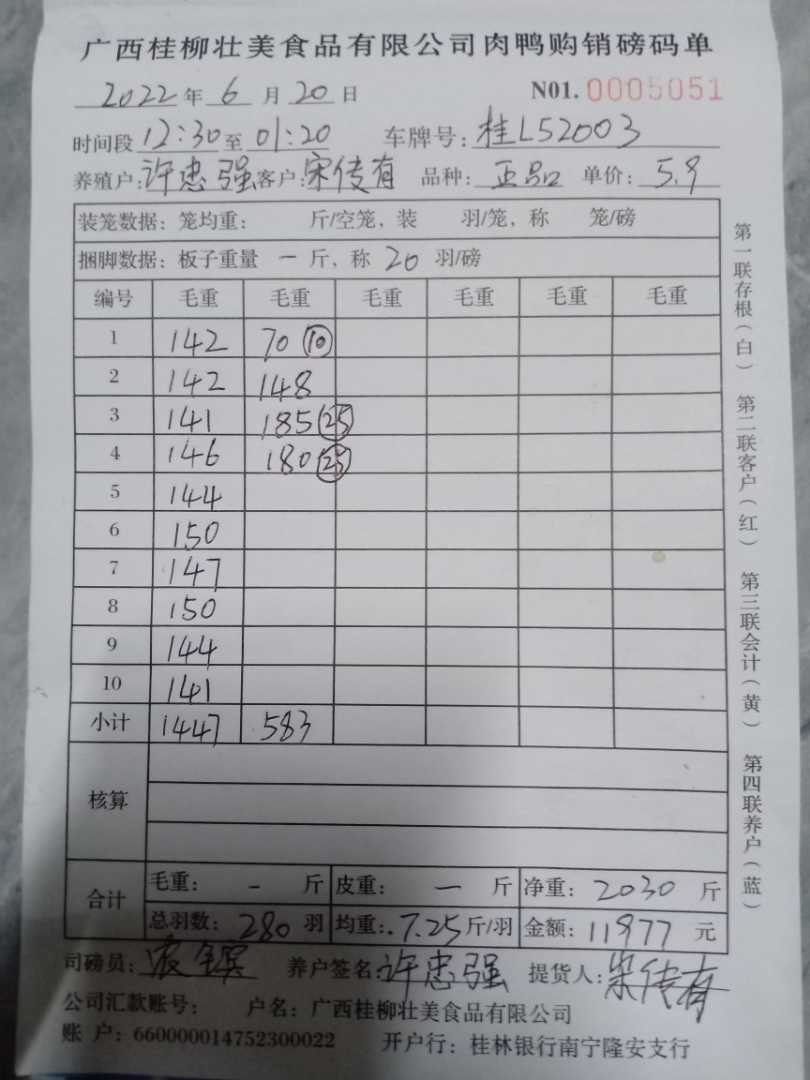 广西桂柳壮美食品有限公司肉鸭购销磅码单
2022年6月20日 N01. 0005051
时间段12:30至01:20 车牌号:桂L52003
养殖户:许忠强 客户:宋传有 品种:正品 单价:5.9
装笼数据: 笼均重: 斤/空笼, 装 羽/笼, 称 笼/磅
捆脚数据: 板子重量 一 斤, 称 20 羽/磅
编号 毛重 毛重 毛重 毛重 毛重 毛重
1 142 70 ⑩
2 142 148
3 141 185 ㉕
4 146 180 ㉕
5 144
6 150
7 147
8 150
9 144
10 141
小计 1447 583
核算
合计 毛重: - 斤 皮重: - 斤 净重: 2030 斤
总羽数: 280 羽 均重: 7.25 斤/羽 金额: 11977 元
司磅员: 养户签名:许忠强 提货人:宋传有
公司汇款账号: 户名: 广西桂柳壮美食品有限公司
账 户: 660000014752300022 开户行: 桂林银行南宁隆安支行
第一联存根(白) 第二联客户(红) 第三联会计(黄) 第四联养户(蓝)